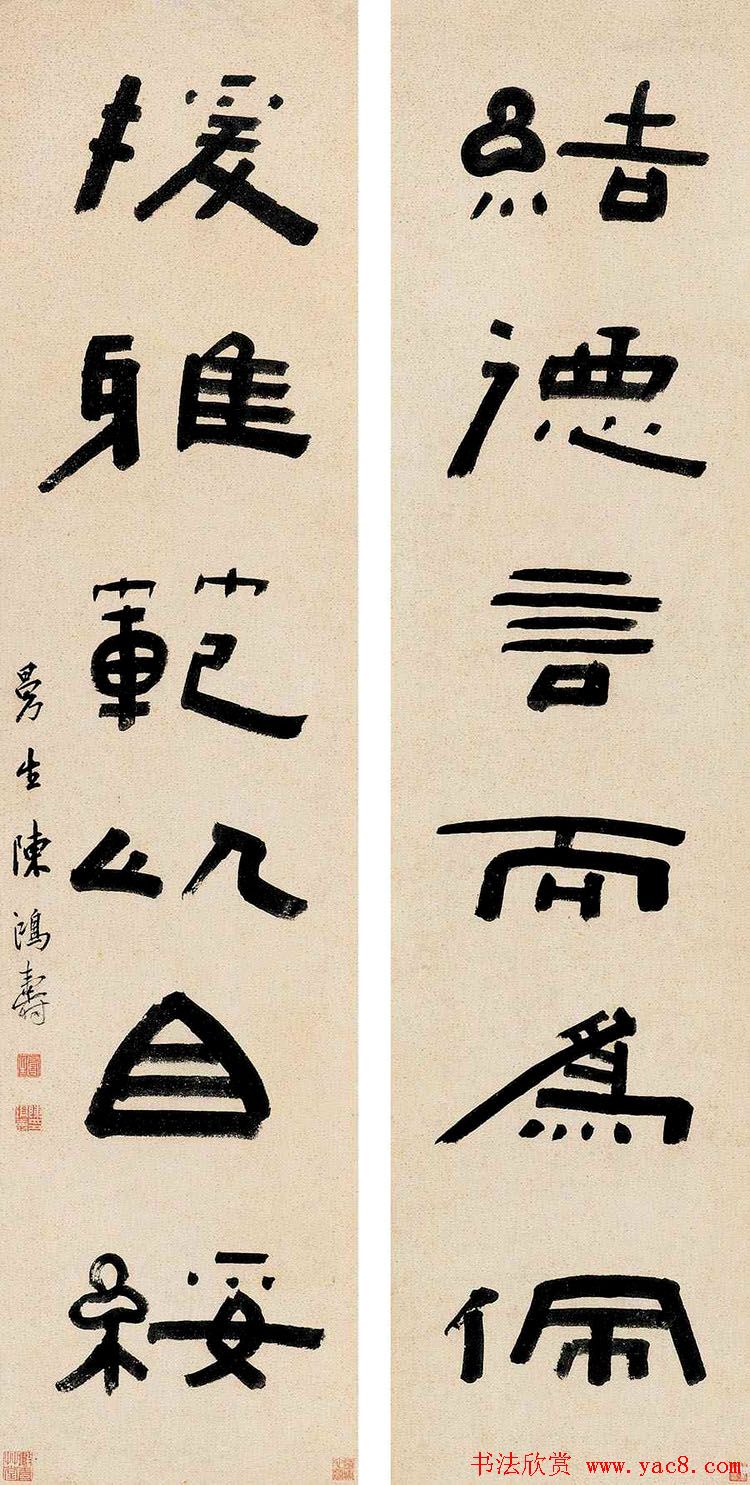 結德言而爲佩
援雅範以自綏
曼生陳鴻壽
书法欣赏 www.yac8.com